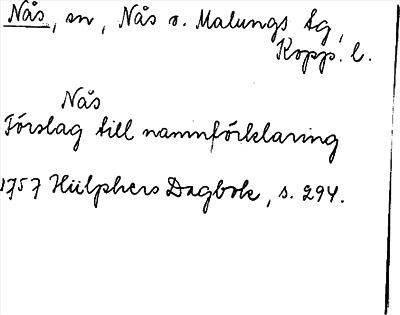 Nås, sn, Nås o. Malungs tg,
Kopp. l.
Nås
Förslag till namnförklaring
1757 Hülphers Dagbok, s. 294.